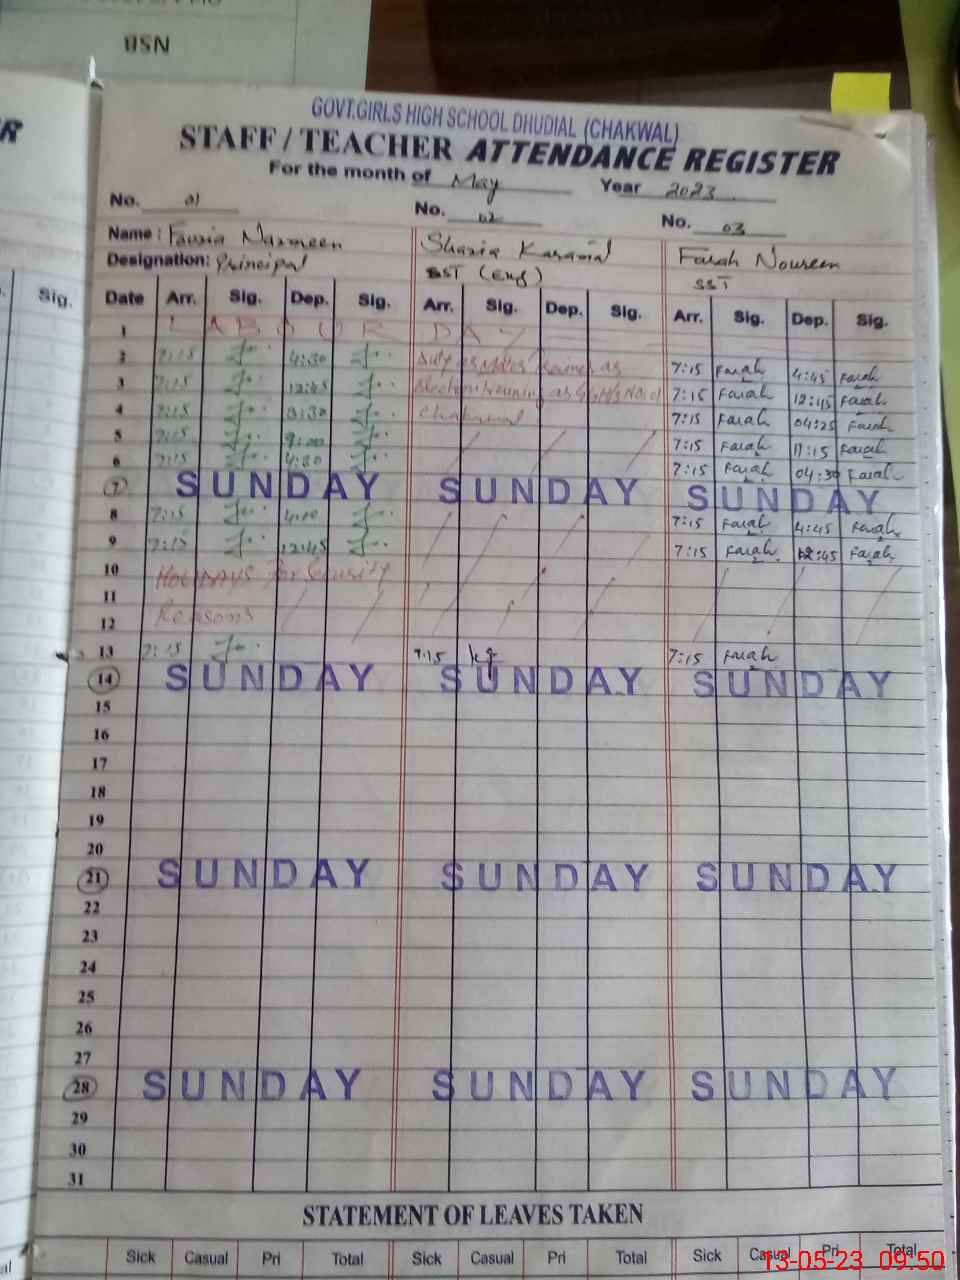 BSN
GOVT.GIRLS HIGH SCHOOL DHUDIAL (CHAKWAL)
STAFF / TEACHER ATTENDANCE REGISTER
For the month of May Year 2023
No. 01 No. 02 No. 03
Name : Fauzia Nasmeen Shazia Farah Noureen
Designation: Principal SST (Eng) SST
Sig. Date Arr. Sig. Dep. Sig. Arr. Sig. Dep. Sig. Arr. Sig. Dep. Sig.
1 LABOUR DAY
2 7:15 4:30 7:15 Farah 4:45 Farah
3 7:15 12:45 7:15 Farah 12:45 Farah
4 7:15 3:30 7:15 Farah 04:25 Farah
5 7:15 7:15 Farah 11:15 Farah
6 7:15 4:30 7:15 Farah 04:30 Farah
7 SUNDAY SUNDAY SUNDAY
8 7:15 7:15 Farah 4:45 Farah
9 7:15 12:45 7:15 Farah 12:45 Farah
10 HOLIDAYS For Security
11
12 Reasons
13 7:15 7:15 7:15 Farah
14 SUNDAY SUNDAY SUNDAY
15
16
17
18
19
20
21 SUNDAY SUNDAY SUNDAY
22
23
24
25
26
27
28 SUNDAY SUNDAY SUNDAY
29
30
31
STATEMENT OF LEAVES TAKEN
Sick Casual Pri Total Sick Casual Pri Total Sick Casual Pri Total
13-05-23 09:50